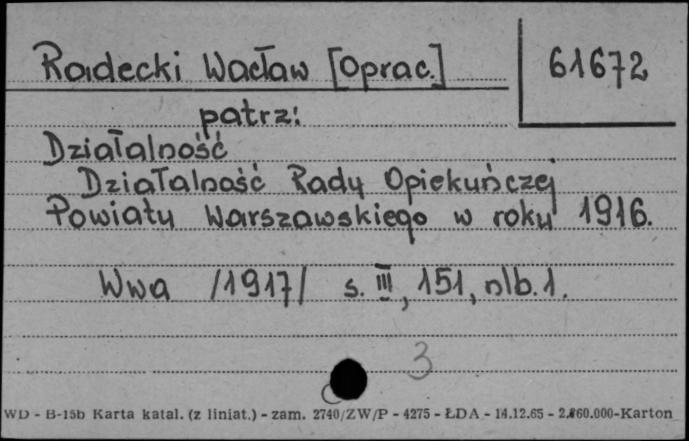 Radecki Wacław [Oprac.]
61672
patrz:
Działalność
Działalność Rady Opiekuńczej
Powiatu Warszawskiego w roku 1916.
Wwa /1917/ s. III, 151, nlb. 1.
3
WD - B-15b Karta katal. (z liniat.) - zam. 2740/ZW/P - 4275 - ŁDA - 14.12.65 - 2.860.000-Karton